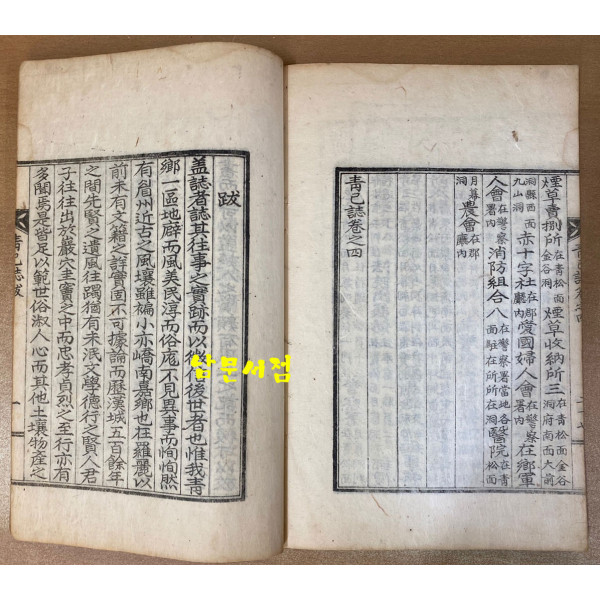 煙草賣捌所在青松面金谷洞煙草收納所三在青松金谷洞府南面大前
洞縣西面九山洞赤十字社在郡廳內愛國婦人會在警察署內在鄉軍
人會在警察署內消防組合八在警察署當地各面駐在所在所醫院在青松面
月幕洞農會在郡廳內
青己誌卷之四
跋
盖誌者誌其往事之實跡而以徵信後世者也惟我青
鄉一區地廦而風美民淳而俗庬不見異事而恂恂然
有眉州近古之風壤雖褊小亦嶠南嘉鄉也在羅麗以
前未有文籍之詳實固不可據論而歷漢城五百餘年
之間先賢之遺風往躅猶有未泯文學德行之賢人君
子往往出於巖穴圭竇之中而忠孝貞烈之至行亦有
多聞焉是皆足以範世俗淑人心而其他土壤物產之
青己誌跋
삼문서점